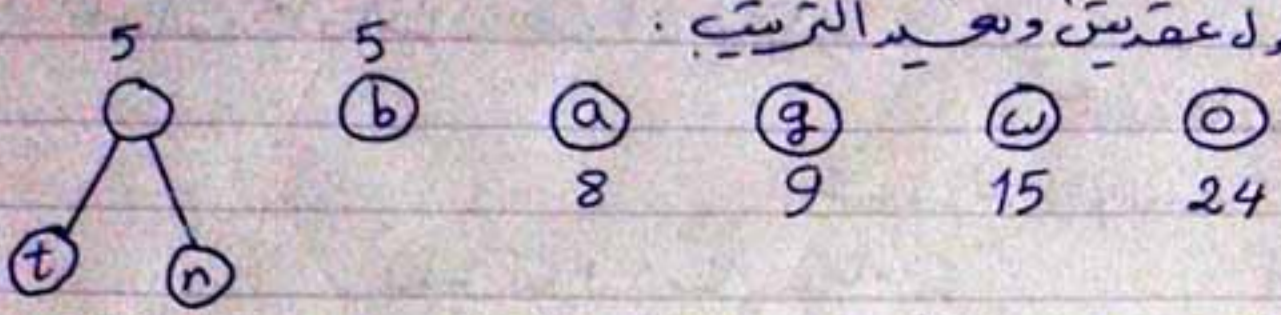 ول عقدتين ونعيد الترتيب :
5 5
b a g w o
8 9 15 24
t n